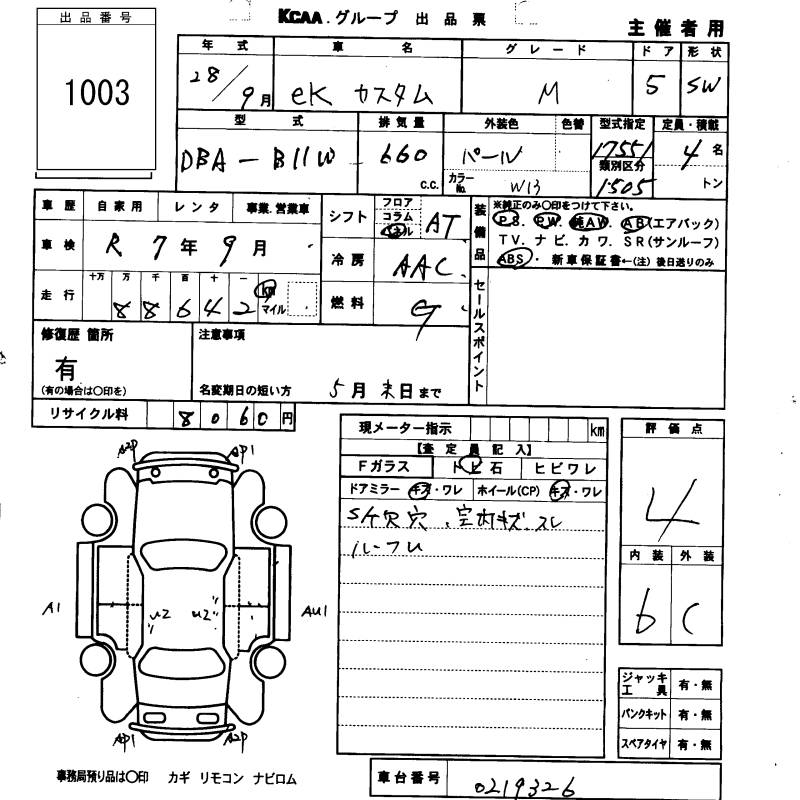 KCAA.グループ 出品票
主催者用
出品番号
1003
年式 車名 グレード ドア 形状
28/9月 eK カスタム M 5 SW
型式 排気量 外装色 色替 型式指定 定員・積載
DBA-B11W 660 c.c. パール 17551 4名
カラーNo. W13 類別区分 1505 トン
車歴 自家用 レンタ 事業.営業車
シフト フロア コラム AT
装備品 ※純正のみ〇印をつけて下さい。
PS. PW. 純AW. AB(エアバック)
TV.ナビ.カワ.SR(サンルーフ)
ABS・新車保証書←(注)後日送りのみ
車検 R7年9月
冷房 AAC
走行 十万 万 千 百 十 一
88642 km マイル
燃料 G
セールスポイント
修復歴 箇所
有
(有の場合は〇印を)
注意事項
名変期日の短い方 5月末日まで
リサイクル料 8060円
現メーター指示 km
【査定員記入】
Fガラス トビ石 ヒビワレ
ドアミラー キズ・ワレ ホイール(CP) キズ・ワレ
S欠穴、室内キズ.スレ
ルーフU
評価点
4
内装 外装
6 C
A2P AP1
A1 U2 U2 AU1
AP1 A2P
ジャッキ工具 有・無
パンクキット 有・無
スペアタイヤ 有・無
事務局預り品は〇印 カギ リモコン ナビロム
車台番号 0219326